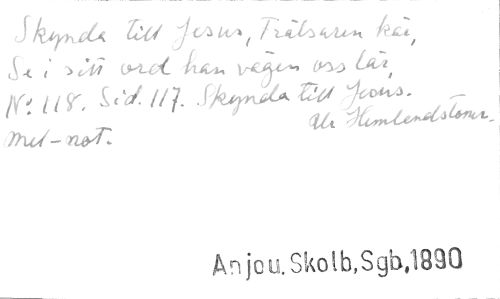 Skynda till Jesus, Frälsaren kär,
Se i sitt ord han vägen oss lär,
No: 118. Sid. 117. Skynda till Jesus.
Ur Hemlandstoner.
mel-not.
Anjou. Skolb, Sgb, 1890